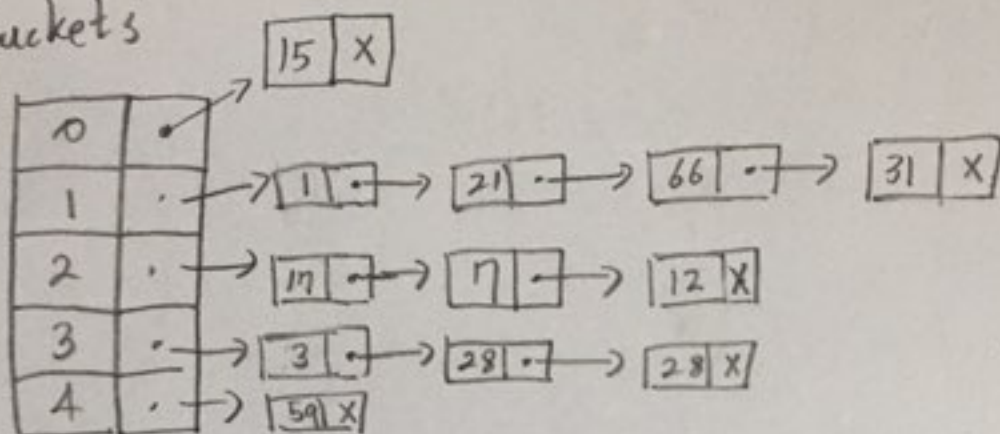 uckets
15 X
0
1 1 21 66 31 X
2 17 7 12 X
3 3 28 28 X
4 59 X